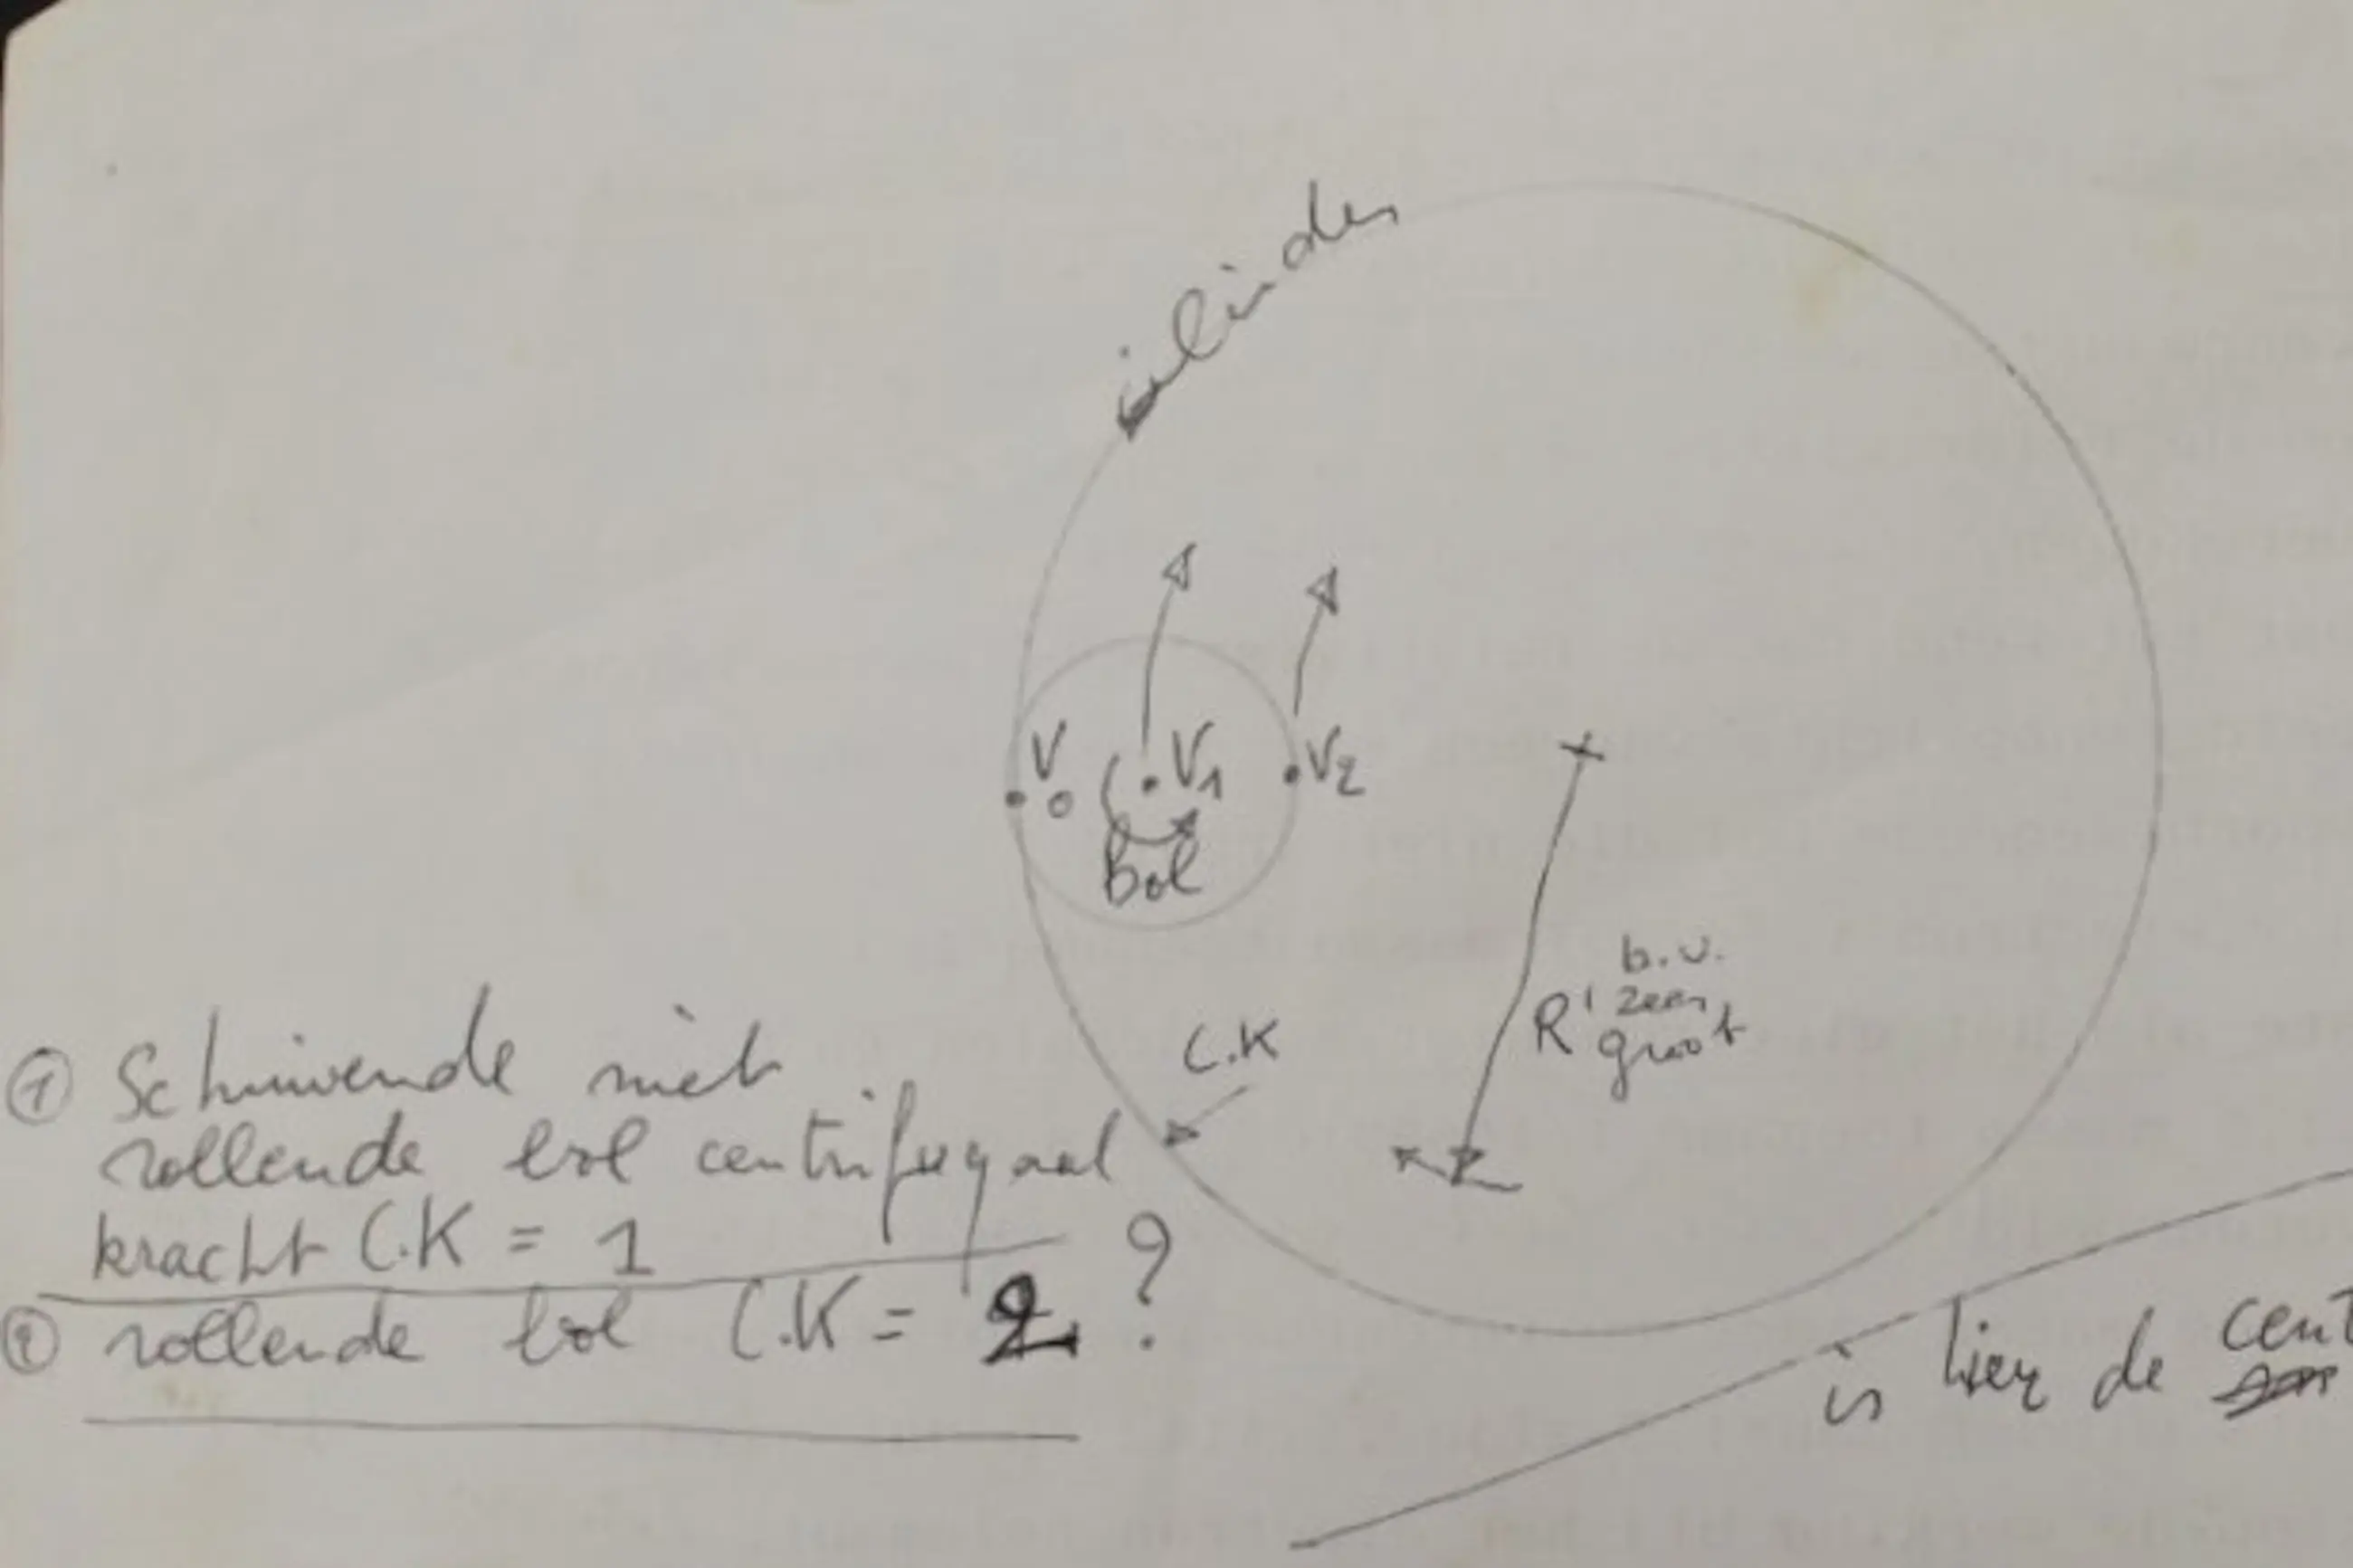 cilinder
V0
V1
V2
Bol
b.v.
R' zeer
groot
C.K
① Schuivende niet
rollende bol centrifugaal
kracht C.K = 1
② rollende bol C.K = 2 ?
is hier de cent